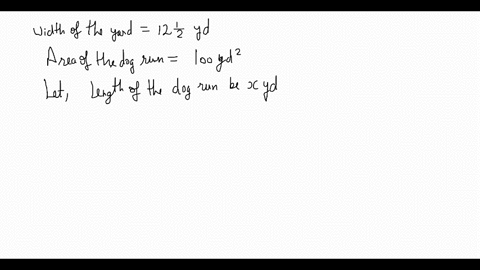 width of the yard = 12 1/2 yd
Area of the dog run = 100 yd²
Let, Length of the dog run be x yd